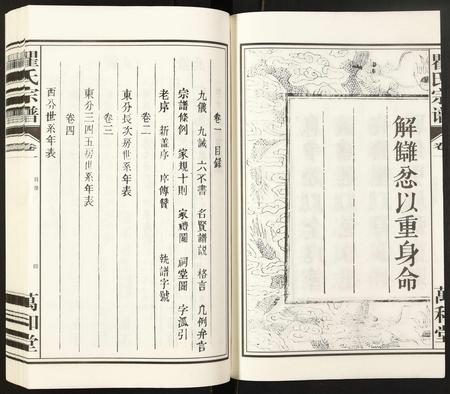 瞿氏宗譜
卷
萬和堂
解讎忿以重身命
卷一 目錄
九儀 九誡 六不書 名賢譜說 格言 凡例弁言
宗譜條例 家規十則 家禮圖 祠堂圖 字派引
老序 新蓋序 序傳贊 執譜字號
卷二
東分長次房世系年表
卷三
東分三四五房世系年表
卷四
西分世系年表
瞿氏宗譜
卷一
目錄
萬和堂